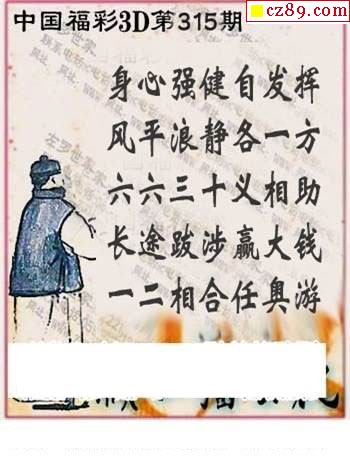 中国福彩3D第315期
cz89.com
身心强健自发挥
风平浪静各一方
六六三十义相助
长途跋涉赢大钱
一二相合任奥游